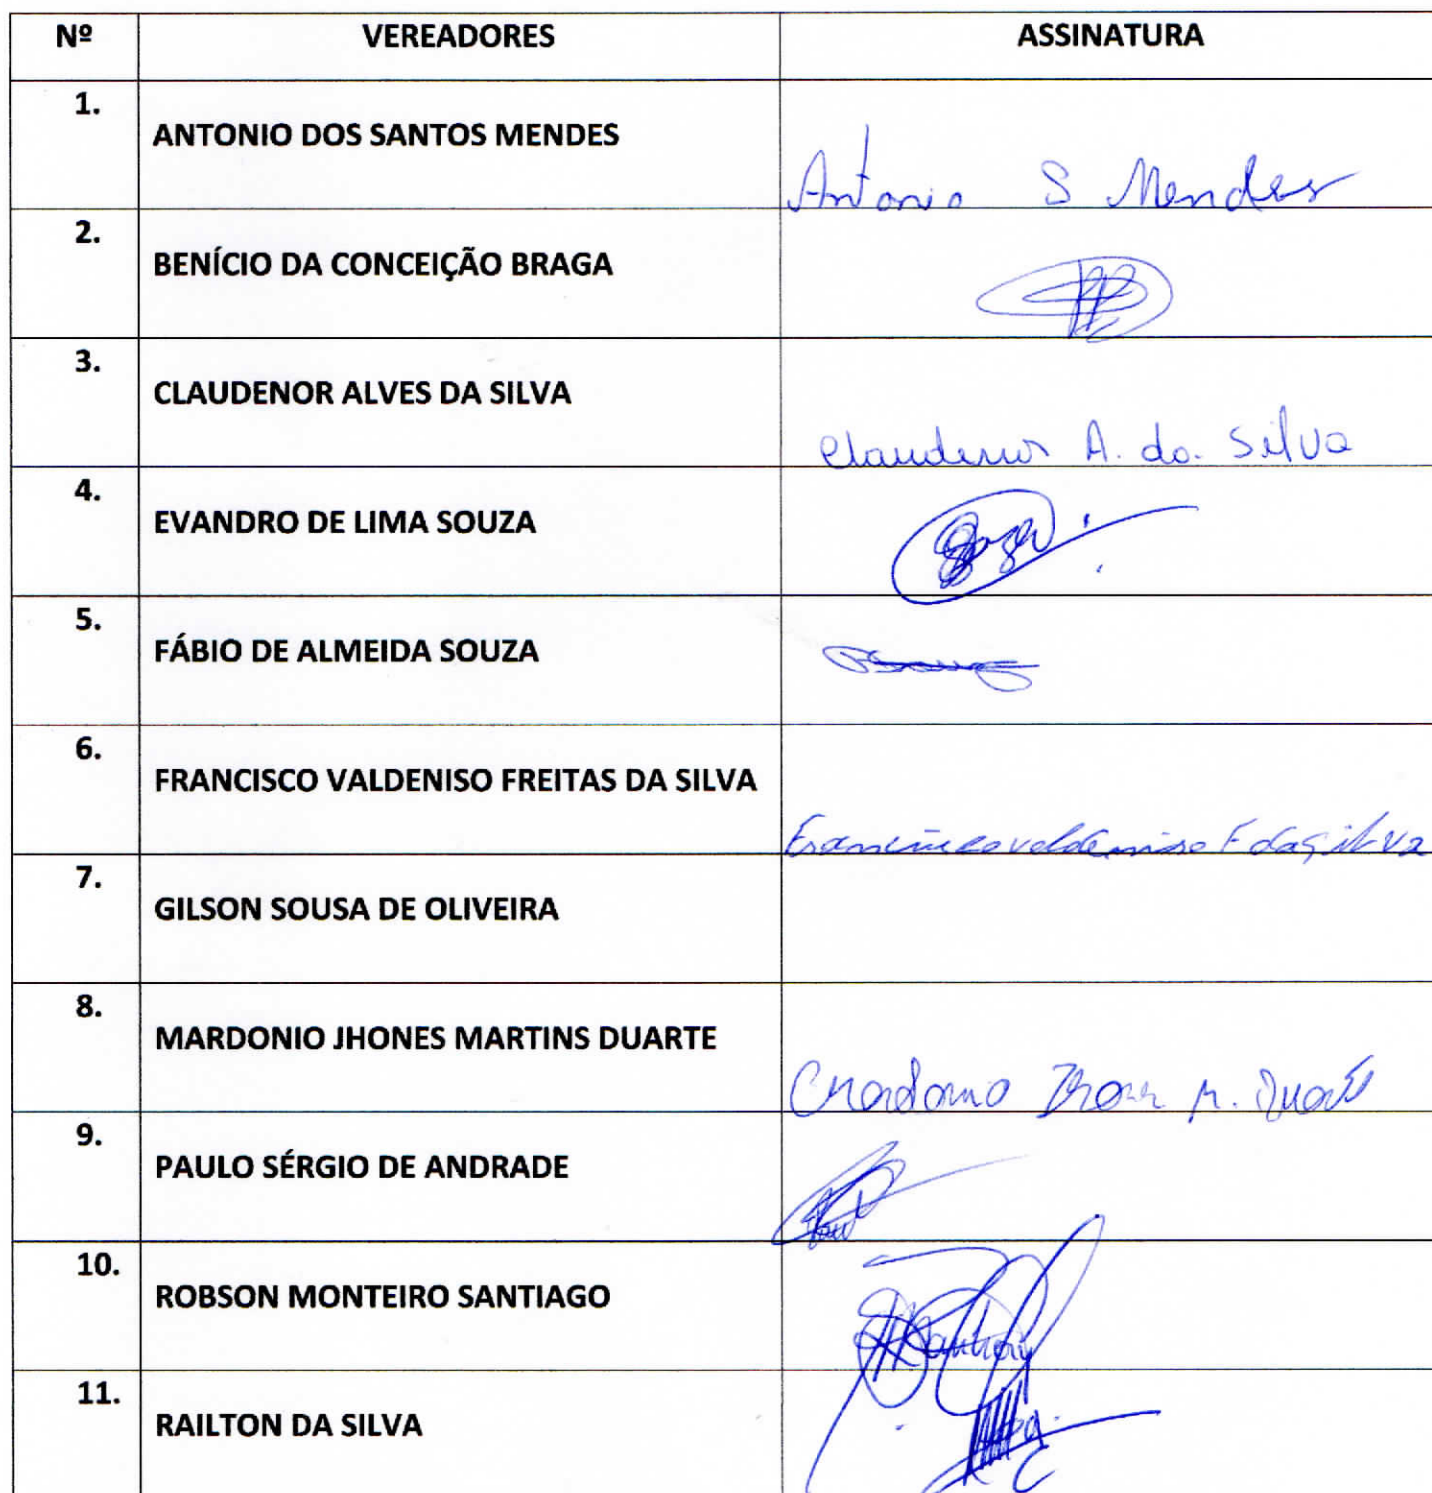 Nº VEREADORES ASSINATURA
1. ANTONIO DOS SANTOS MENDES
Antonio S Mendes
2. BENÍCIO DA CONCEIÇÃO BRAGA
3. CLAUDENOR ALVES DA SILVA
Claudenor A. da. Silva
4. EVANDRO DE LIMA SOUZA
5. FÁBIO DE ALMEIDA SOUZA
6. FRANCISCO VALDENISO FREITAS DA SILVA
F da Silva
7. GILSON SOUSA DE OLIVEIRA
8. MARDONIO JHONES MARTINS DUARTE
M. Duarte
9. PAULO SÉRGIO DE ANDRADE
10. ROBSON MONTEIRO SANTIAGO
11. RAILTON DA SILVA